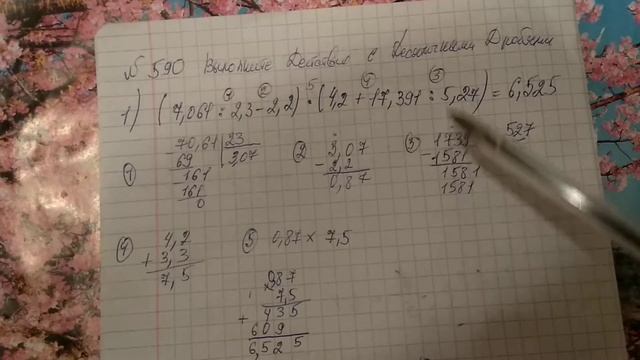 № 590 Выполните Действия с Десятичными Дробями
① ② ⑤ ④ ③
1) (7,061 : 2,3 - 2,2) · (4,2 + 17,391 : 5,27) = 6,525
① 70,61 | 23
69 3,07
161
161
0
② 3,07
- 2,2
0,87
③ 1739 527
- 1581
1581
1581
④ 4,2
+ 3,3
7,5
⑤ 0,87 × 7,5
0,87
7,5
+ 435
609
6,525